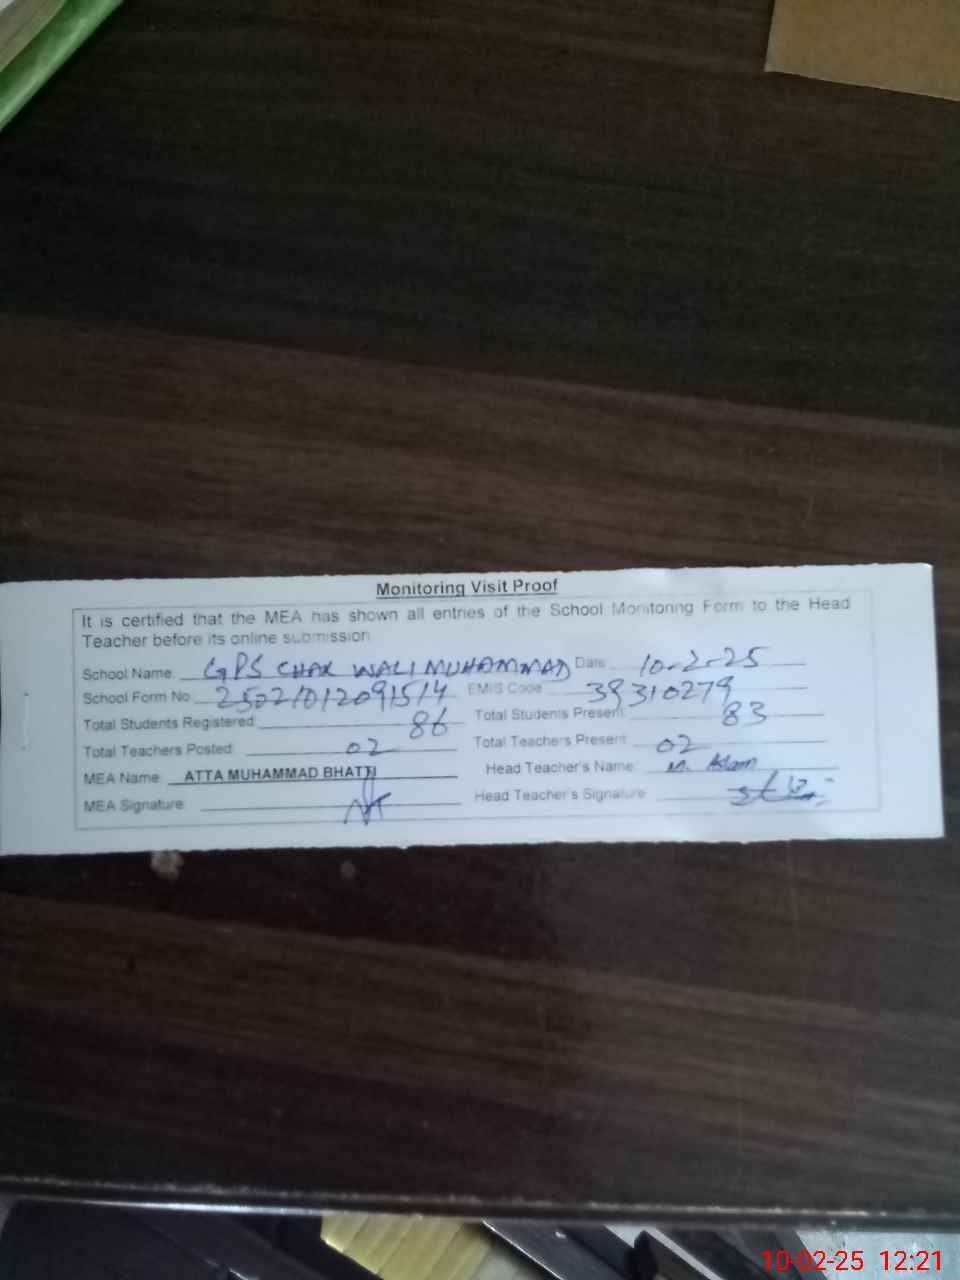 Monitoring Visit Proof
It is certified that the MEA has shown all entries of the School Monitoring Form to the Head
Teacher before its online submission
School Name: GPS CHAK WALI MUHAMMAD Date 10-2-25
School Form No. 25021012091514 EMIS Code 39310279
Total Students Registered: 86 Total Students Present 83
Total Teachers Posted: 02 Total Teachers Present 02
MEA Name: ATTA MUHAMMAD BHATTI Head Teacher's Name: M. Aslam
MEA Signature: Head Teacher's Signature
10-02-25 12:21